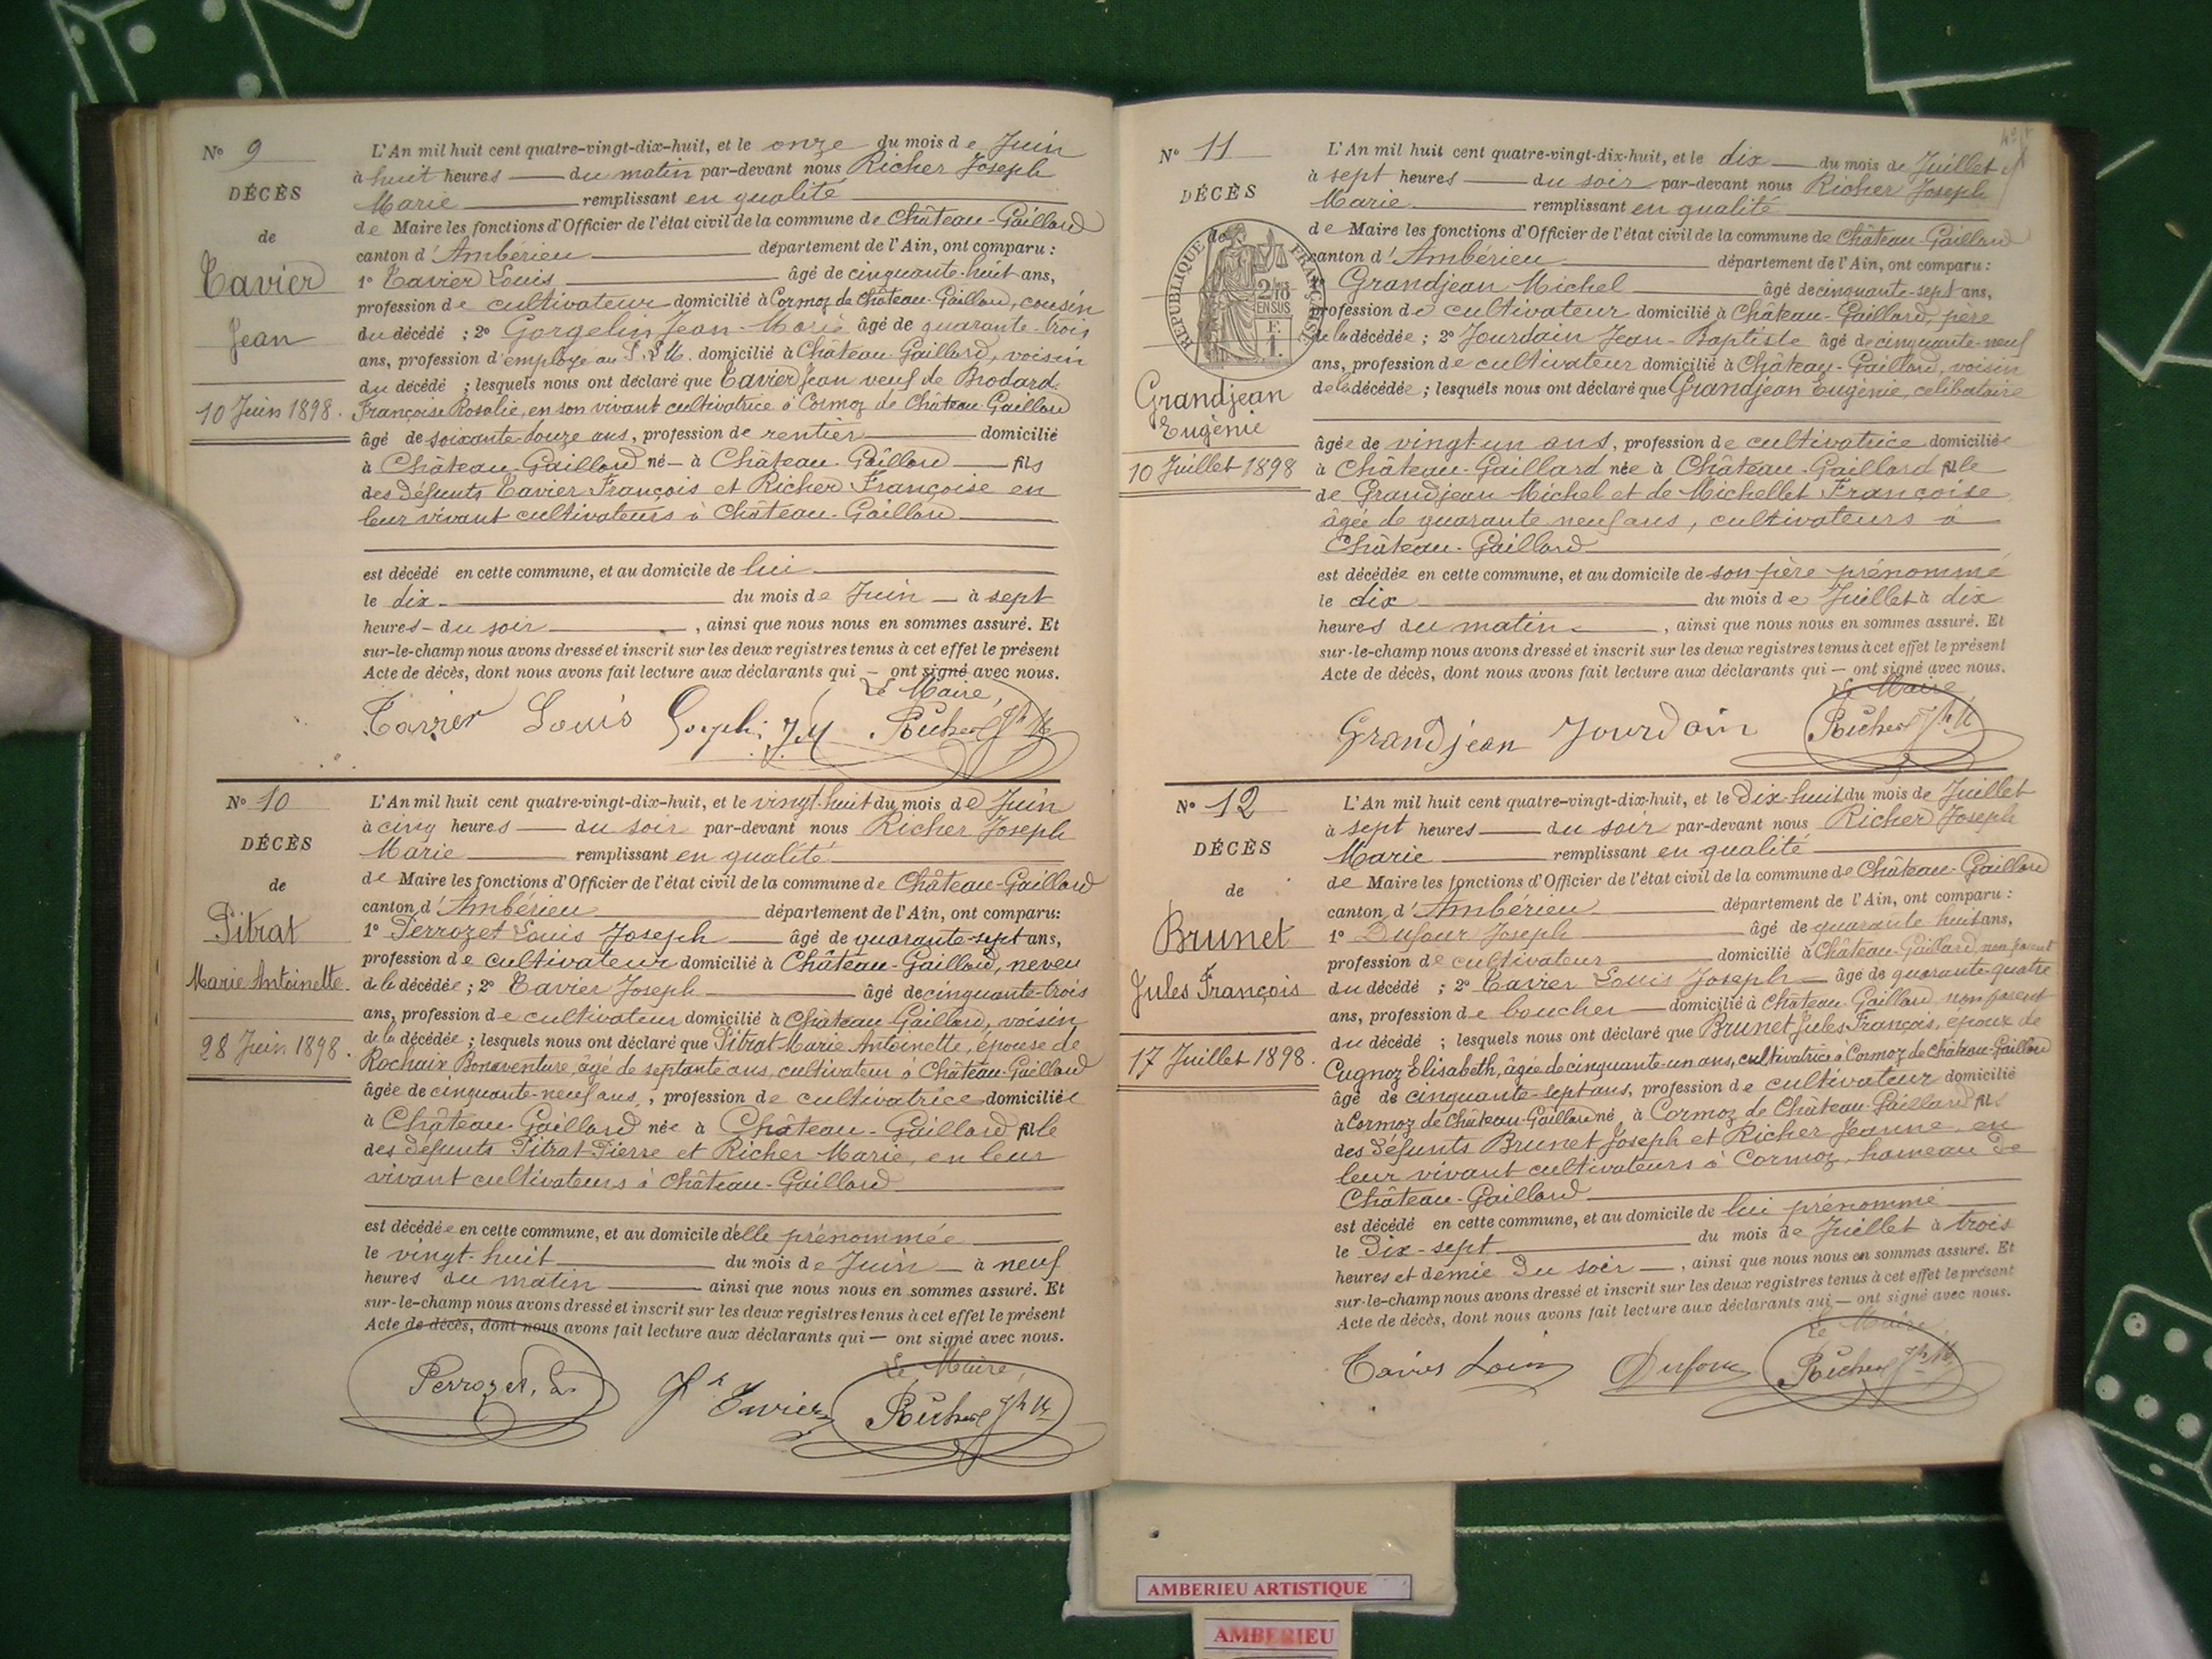 N° 9
DÉCÈS
de
Tavier
Jean
10 Juin 1898.
L'An mil huit cent quatre-vingt-dix-huit, et le onze du mois de Juin
à huit heures — du matin par-devant nous Richer Joseph
Marie — remplissant en qualité
de Maire les fonctions d'Officier de l'état civil de la commune de Château-Gaillard
canton d'Ambérieu — département de l'Ain, ont comparu :
1° Tavier Louis — âgé de cinquante-huit ans,
profession de cultivateur domicilié à Cormoz de Château-Gaillard, cousin
du décédé ; 2° Gorgelin Jean-Marie âgé de quarante-trois
ans, profession d'employé au domicilié à Château-Gaillard, voisin
du décédé ; lesquels nous ont déclaré que Tavier Jean veuf de Brodard
Françoise Rosalie, en son vivant cultivatrice à Cormoz de Château-Gaillard
âgé de soixante-douze ans, profession de rentier — domicilié
à Château-Gaillard né — à Château-Gaillard — fils
des défunts Tavier François et Richer Françoise en
leur vivant cultivateurs à Château-Gaillard
est décédé en cette commune, et au domicile de lui
le dix — du mois de Juin — à sept
heures — du soir — , ainsi que nous nous en sommes assuré. Et
sur-le-champ nous avons dressé et inscrit sur les deux registres tenus à cet effet le présent
Acte de décès, dont nous avons fait lecture aux déclarants qui — ont signé avec nous.
Le Maire,
Tavier Louis Richer Jh M
N° 10
DÉCÈS
de
Pitrat
Marie Antoinette.
28 Juin 1898.
L'An mil huit cent quatre-vingt-dix-huit, et le vingt-huit du mois de Juin
à cinq heures — du soir par-devant nous Richer Joseph
Marie — remplissant en qualité
de Maire les fonctions d'Officier de l'état civil de la commune de Château-Gaillard
canton d'Ambérieu — département de l'Ain, ont comparu:
1° Perrozet Louis Joseph — âgé de quarante-sept ans,
profession de cultivateur domicilié à Château-Gaillard, neveu
de la décédée ; 2° Tavier Joseph — âgé de cinquante-trois
ans, profession de cultivateur domicilié à Château-Gaillard, voisin
de la décédée ; lesquels nous ont déclaré que Pitrat Marie Antoinette, épouse de
Rochaix Bonaventure, âgé de septante ans, cultivateur à Château-Gaillard
âgée de cinquante-neuf ans, profession de cultivatrice domiciliée
à Château-Gaillard née à Château-Gaillard fille
des défunts Pitrat Pierre et Richer Marie, en leur
vivant cultivateurs à Château-Gaillard
est décédée en cette commune, et au domicile d'elle prénommée
le vingt-huit — du mois de Juin — à neuf
heures du matin — ainsi que nous nous en sommes assuré. Et
sur-le-champ nous avons dressé et inscrit sur les deux registres tenus à cet effet le présent
Acte de décès, dont nous avons fait lecture aux déclarants qui — ont signé avec nous.
Le Maire,
Perrozet, L. Jh Tavier Richer Jh M
N° 11
DÉCÈS
de
RÉPUBLIQUE FRANÇAISE
2/10 EN SUS
F. 1.
Grandjean
Eugénie
10 Juillet 1898
L'An mil huit cent quatre-vingt-dix-huit, et le dix — du mois de Juillet
à sept heures — du soir par-devant nous Richer Joseph
Marie — remplissant en qualité
de Maire les fonctions d'Officier de l'état civil de la commune de Château-Gaillard
canton d'Ambérieu — département de l'Ain, ont comparu :
1° Grandjean Michel — âgé de cinquante-sept ans,
profession de cultivateur domicilié à Château-Gaillard, père
de la décédée ; 2° Jourdain Jean-Baptiste âgé de cinquante-neuf
ans, profession de cultivateur domicilié à Château-Gaillard, voisin
de la décédée ; lesquels nous ont déclaré que Grandjean Eugénie, célibataire
âgée de vingt-un ans, profession de cultivatrice domiciliée
à Château-Gaillard née à Château-Gaillard fille
de Grandjean Michel et de Michellet Françoise
âgée de quarante-neuf ans, cultivateurs à
Château-Gaillard
est décédée en cette commune, et au domicile de son père prénommé
le dix — du mois de Juillet à dix
heures du matin — , ainsi que nous nous en sommes assuré. Et
sur-le-champ nous avons dressé et inscrit sur les deux registres tenus à cet effet le présent
Acte de décès, dont nous avons fait lecture aux déclarants qui — ont signé avec nous.
Le Maire,
Grandjean Jourdain Richer Jh M
N° 12
DÉCÈS
de
Brunet
Jules François
17 Juillet 1898.
L'An mil huit cent quatre-vingt-dix-huit, et le Dix-huit du mois de Juillet
à sept heures — du soir par-devant nous Richer Joseph
Marie — remplissant en qualité
de Maire les fonctions d'Officier de l'état civil de la commune de Château-Gaillard
canton d'Ambérieu — département de l'Ain, ont comparu :
1° Dufour Joseph — âgé de quarante-huit ans,
profession de cultivateur — domicilié à Château-Gaillard, non parent
du décédé ; 2° Tavier Louis Joseph — âgé de quarante-quatre
ans, profession de boucher — domicilié à Château-Gaillard, non parent
du décédé ; lesquels nous ont déclaré que Brunet Jules François, époux de
Cugnoz Elisabeth, âgée de cinquante-un ans, cultivatrice à Cormoz de Château-Gaillard
âgé de cinquante-sept ans, profession de cultivateur domicilié
à Cormoz de Château-Gaillard né à Cormoz de Château-Gaillard fils
des défunts Brunet Joseph et Richer Jeanne, en
leur vivant cultivateurs à Cormoz, hameau de
Château-Gaillard
est décédé en cette commune, et au domicile de lui prénommé
le Dix-sept — du mois de Juillet à trois
heures et demie Du soir — , ainsi que nous nous en sommes assuré. Et
sur-le-champ nous avons dressé et inscrit sur les deux registres tenus à cet effet le présent
Acte de décès, dont nous avons fait lecture aux déclarants qui — ont signé avec nous.
Le Maire,
Louis Dufour Richer Jh M
AMBERIEU ARTISTIQUE
AMBERIEU